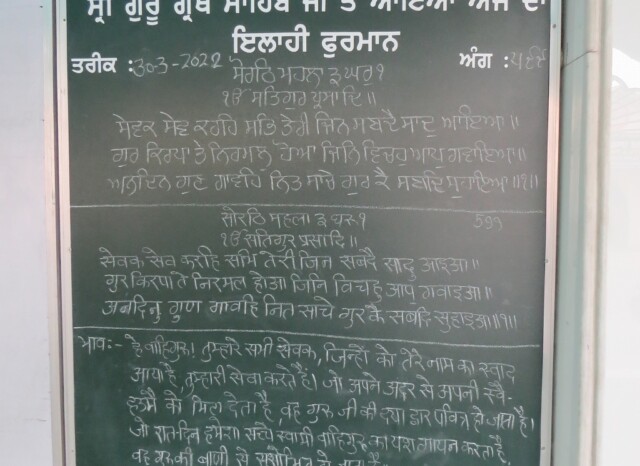 ਸ੍ਰੀ ਗੁਰੂ ਗ੍ਰੰਥ ਸਾਹਿਬ ਜੀ ਤੋਂ ਆਇਆ ਅੱਜ ਦਾ
ਇਲਾਹੀ ਫੁਰਮਾਨ
ਤਰੀਕ :30-3-2022 ਅੰਗ :੫੯੯
ਸੋਰਠਿ ਮਹਲਾ ੩ ਘਰੁ ੧
ੴ ਸਤਿਗੁਰ ਪ੍ਰਸਾਦਿ॥
ਸੇਵਕ ਸੇਵ ਕਰਹਿ ਸਭਿ ਤੇਰੀ ਜਿਨ ਸਬਦੈ ਸਾਦੁ ਆਇਆ॥
ਗੁਰ ਕਿਰਪਾ ਤੇ ਨਿਰਮਲੁ ਹੋਆ ਜਿਨਿ ਵਿਚਹੁ ਆਪੁ ਗਵਾਇਆ॥
ਅਨਦਿਨੁ ਗੁਣ ਗਾਵਹਿ ਨਿਤ ਸਾਚੇ ਗੁਰ ਕੈ ਸਬਦਿ ਸੁਹਾਇਆ॥੧॥
सोरठि महला ३ घरु १ 599
ੴ सतिगुर प्रसादि॥
सेवक सेव करहि सभि तेरी जिन सबदै सादु आइआ॥
गुर किरपा ते निरमल होआ जिनि विचहु आपु गवाइआ॥
अनदिनु गुण गावहि नित साचे गुर कै सबदि सुहाइआ॥१॥
भाव:- हे वाहिगुरू! तुम्हारे सभी सेवक, जिन्हों को तेरे नाम का स्वाद
आया है, तुम्हारी सेवा करते हैं। जो अपने अंदर से अपनी स्वै-
हउमै को मिटा देता है, वह गुरू जी की दया द्वारा पवित्र हो जाता है।
जो रातदिन हमेशा सच्चे स्वामी वाहिगुरू का यश गायन करता है,
वह गुरू की बाणी से